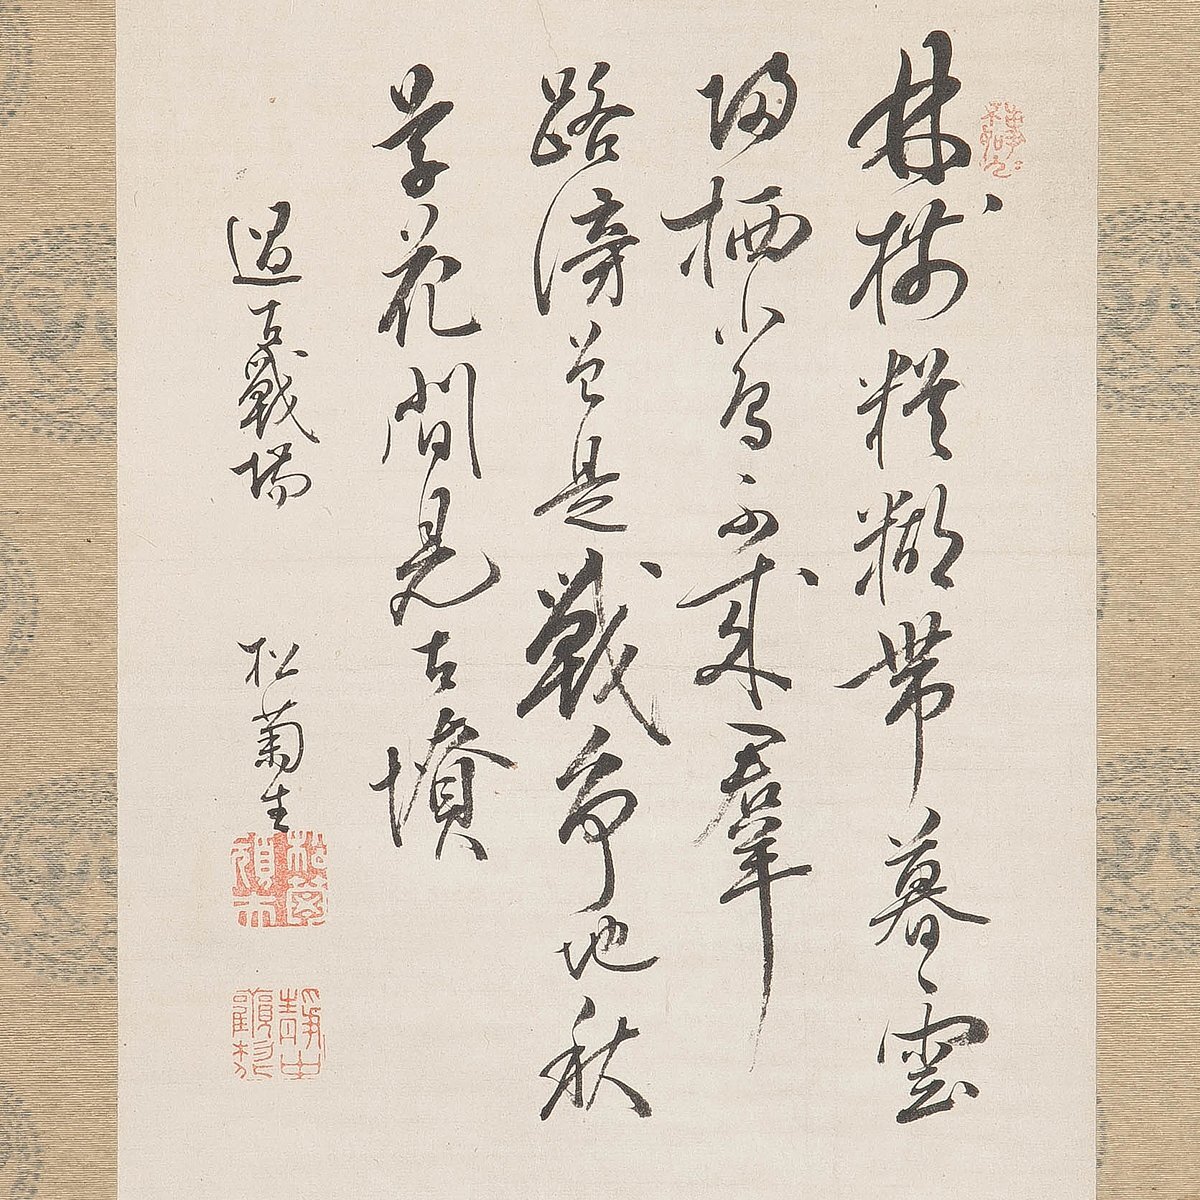 林樹糢糊帶暮雲
歸栖小鳥不成羣
路傍曾是戰爭地秋
草花間見古墳
過古戰場
松菊生